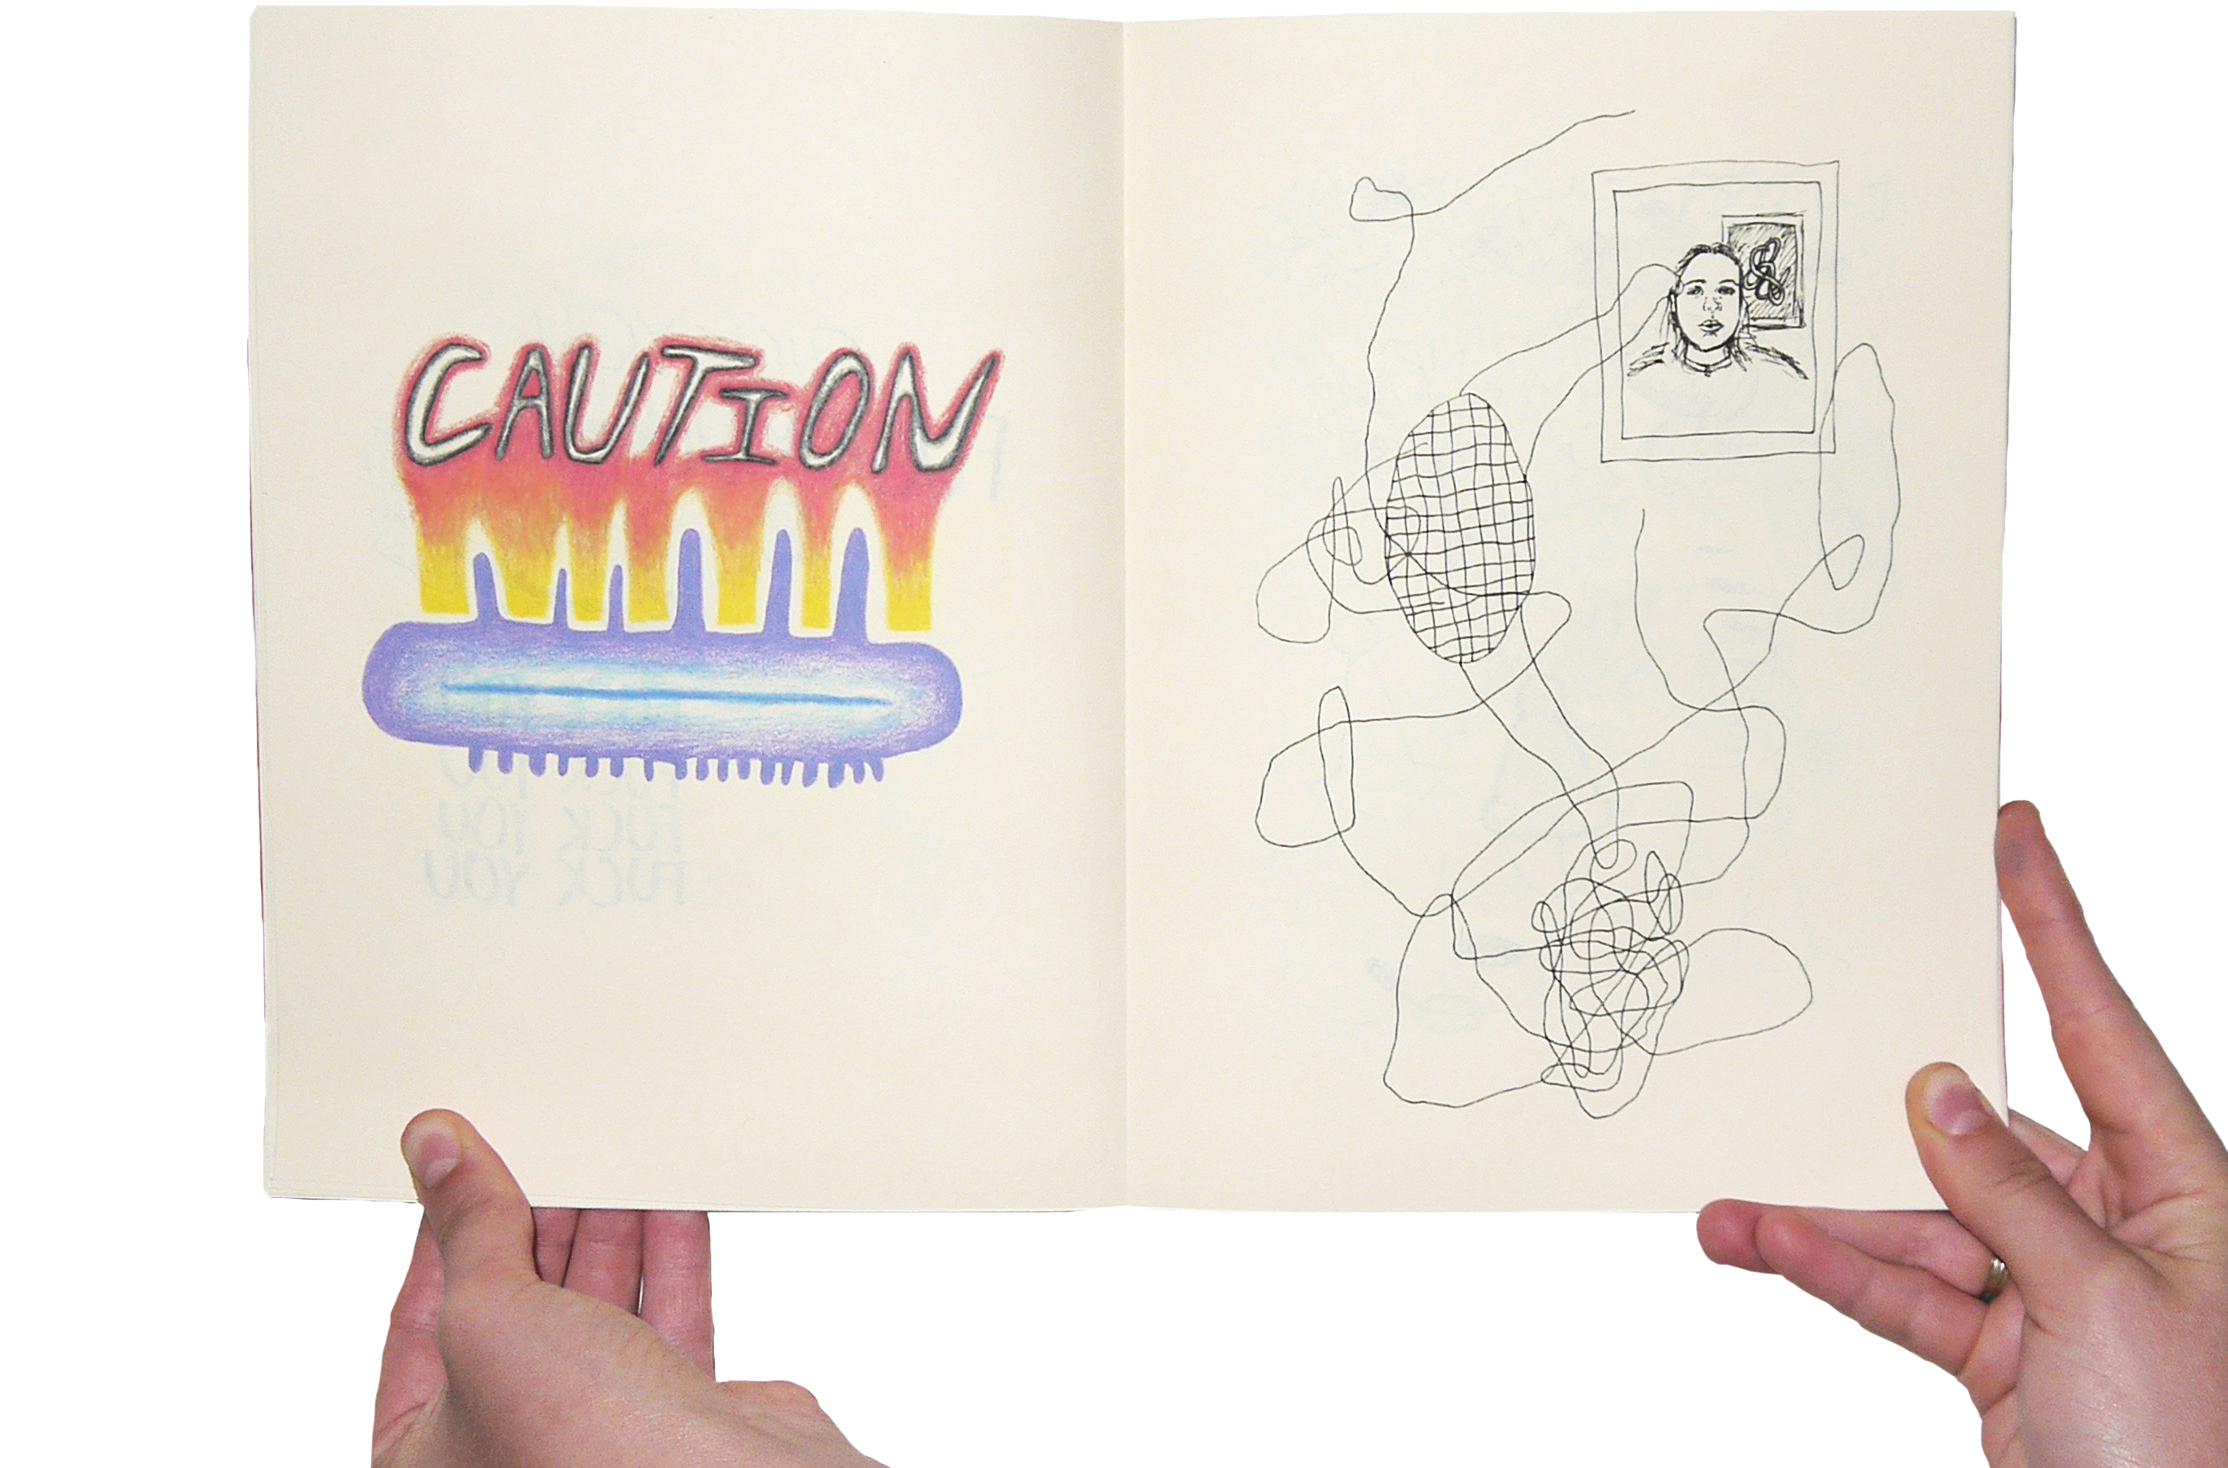 CAUTION
FUCK YOU
FUCK YOU
FUCK YOU